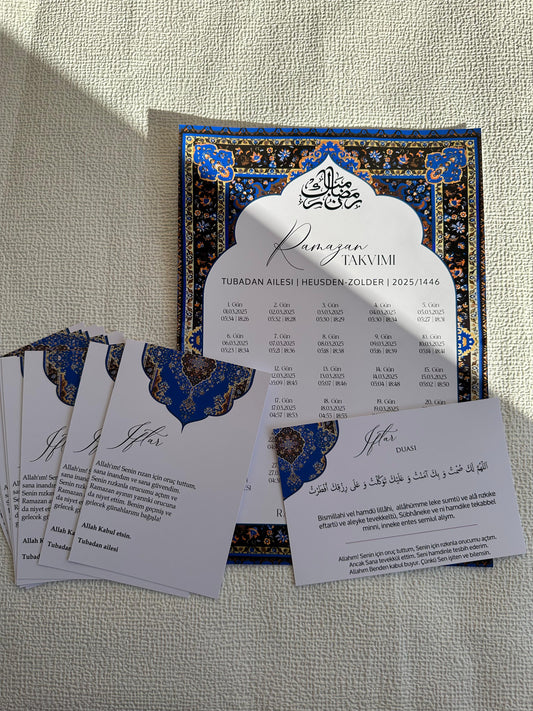 رمضان مبارك
Ramazan
TAKVIMI
TUBADAN AILESI | HEUSDEN-ZOLDER | 2025/1446
1. Gün 2. Gün 3. Gün 4. Gün 5. Gün
01.03.2025 02.03.2025 03.03.2025 04.03.2025 05.03.2025
05:34 | 18:26 05:32 | 18:28 05:30 | 18:29 05:29 | 18:31
6. Gün 7. Gün 8. Gün 9. Gün 10. Gün
06.03.2025 07.03.2025 08.03.2025 09.03.2025 10.03.2025
05:23 | 18:34 05:21 | 18:36 05:16 | 18:39 05:14 | 18:41
12. Gün 13. Gün 14. Gün 15. Gün
12.03.2025 13.03.2025 14.03.2025 15.03.2025
05:09 | 18:45 05:07 | 18:46 05:04 | 18:48 05:02 | 18:50
17. Gün 18. Gün 19. Gün 20. Gün
17.03.2025 18.03.2025 19.03.2025
Iftar
Allah'ım! Senin rızan için oruç tuttum,
sana inandım ve sana güvendim.
Senin rızkınla orucumu açtım ve
Ramazan ayının yarınki orucuna
da niyet ettim. Benim geçmiş ve
gelecek günahlarımı bağışla!
Allah Kabul etsin.
Tubadan ailesi
Iftar
DUASI
اَللّٰهُمَّ لَكَ صُمْتُ وَ بِكَ آمَنْتُ وَ عَلَيْكَ تَوَكَّلْتُ وَ عَلَى رِزْقِكَ اَفْطَرْتُ
Bismillahi vel hamdü lillâhi, allâhümme leke sumtü ve alâ rızkıke
eftartü ve aleyke tevekkeltü, Sübhâneke ve ni hamdike tekabbel
minni, inneke entes semiul aliym.
Allahım! Senin için oruç tuttum, Senin için rızkınla orucumu açtım.
Ancak Sana tevekkül ettim. Seni hamdinle tesbih ederim.
Allahım Benden kabul buyur. Çünkü Sen işiten ve bilensin.